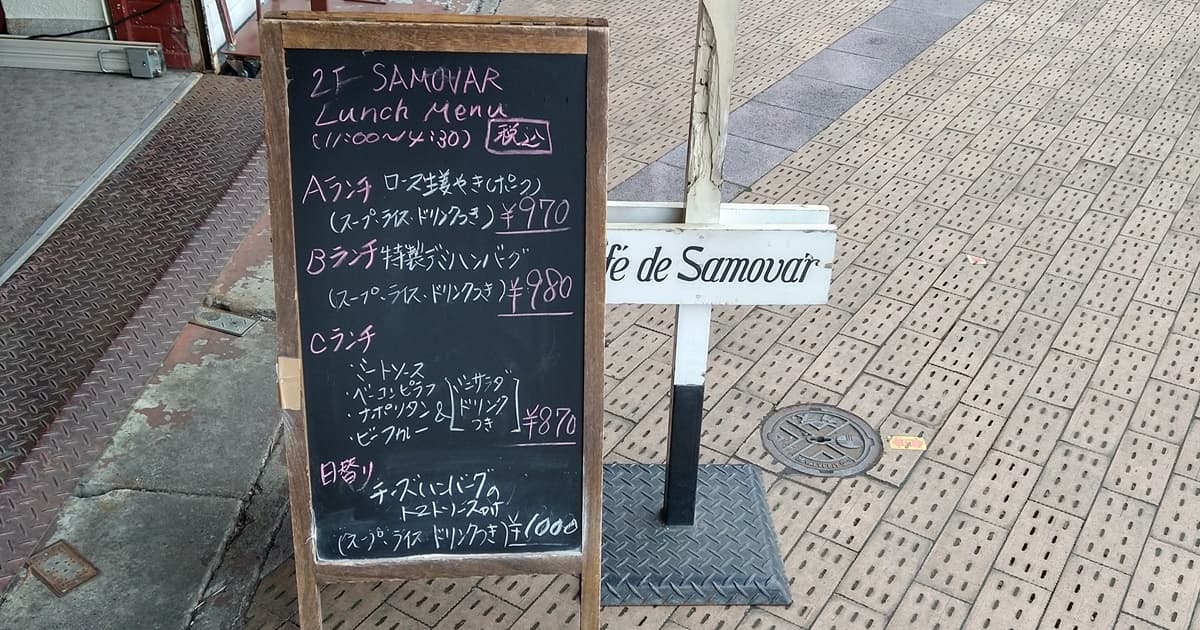 2F SAMOVAR
Lunch Menu
(11:00〜4:30) 税込
Aランチ ロース生姜やき(ポーク)
(スープ、ライス、ドリンクつき) ¥970
Bランチ 特製デミハンバーグ
(スープ、ライス、ドリンクつき) ¥980
Cランチ
・ミートソース
・ベーコンピラフ
・ナポリタン
・ビーフカレー
& [ミニサラダ
ドリンク
つき] ¥870
日替り
チーズハンバーグの
トマトソースがけ
(スープ、ライス ドリンクつき) ¥1000
fé de Samovar